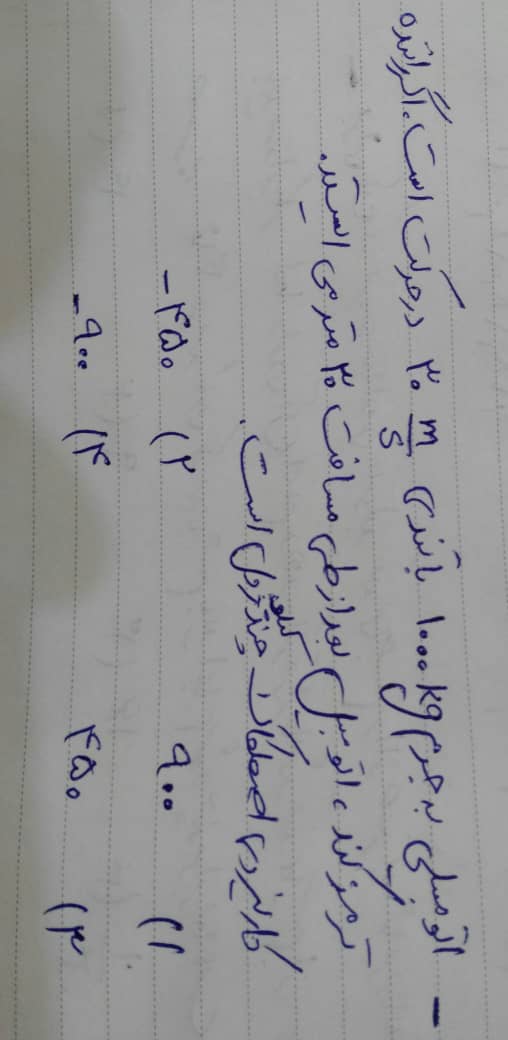 - اتومبیلی به جرم ۱۰۰۰ kg با تندی ۳۰ m/s در حرکت است. اگر راننده
ترمز کند، اتومبیل بعد از طی مسافت ۳۰ متر می ایستد.
کار نیروی اصطکاک چند کیلو ژول است.
۱) ۹۰۰ ۲) -۴۵۰
۳) ۴۵۰ ۴) -۹۰۰